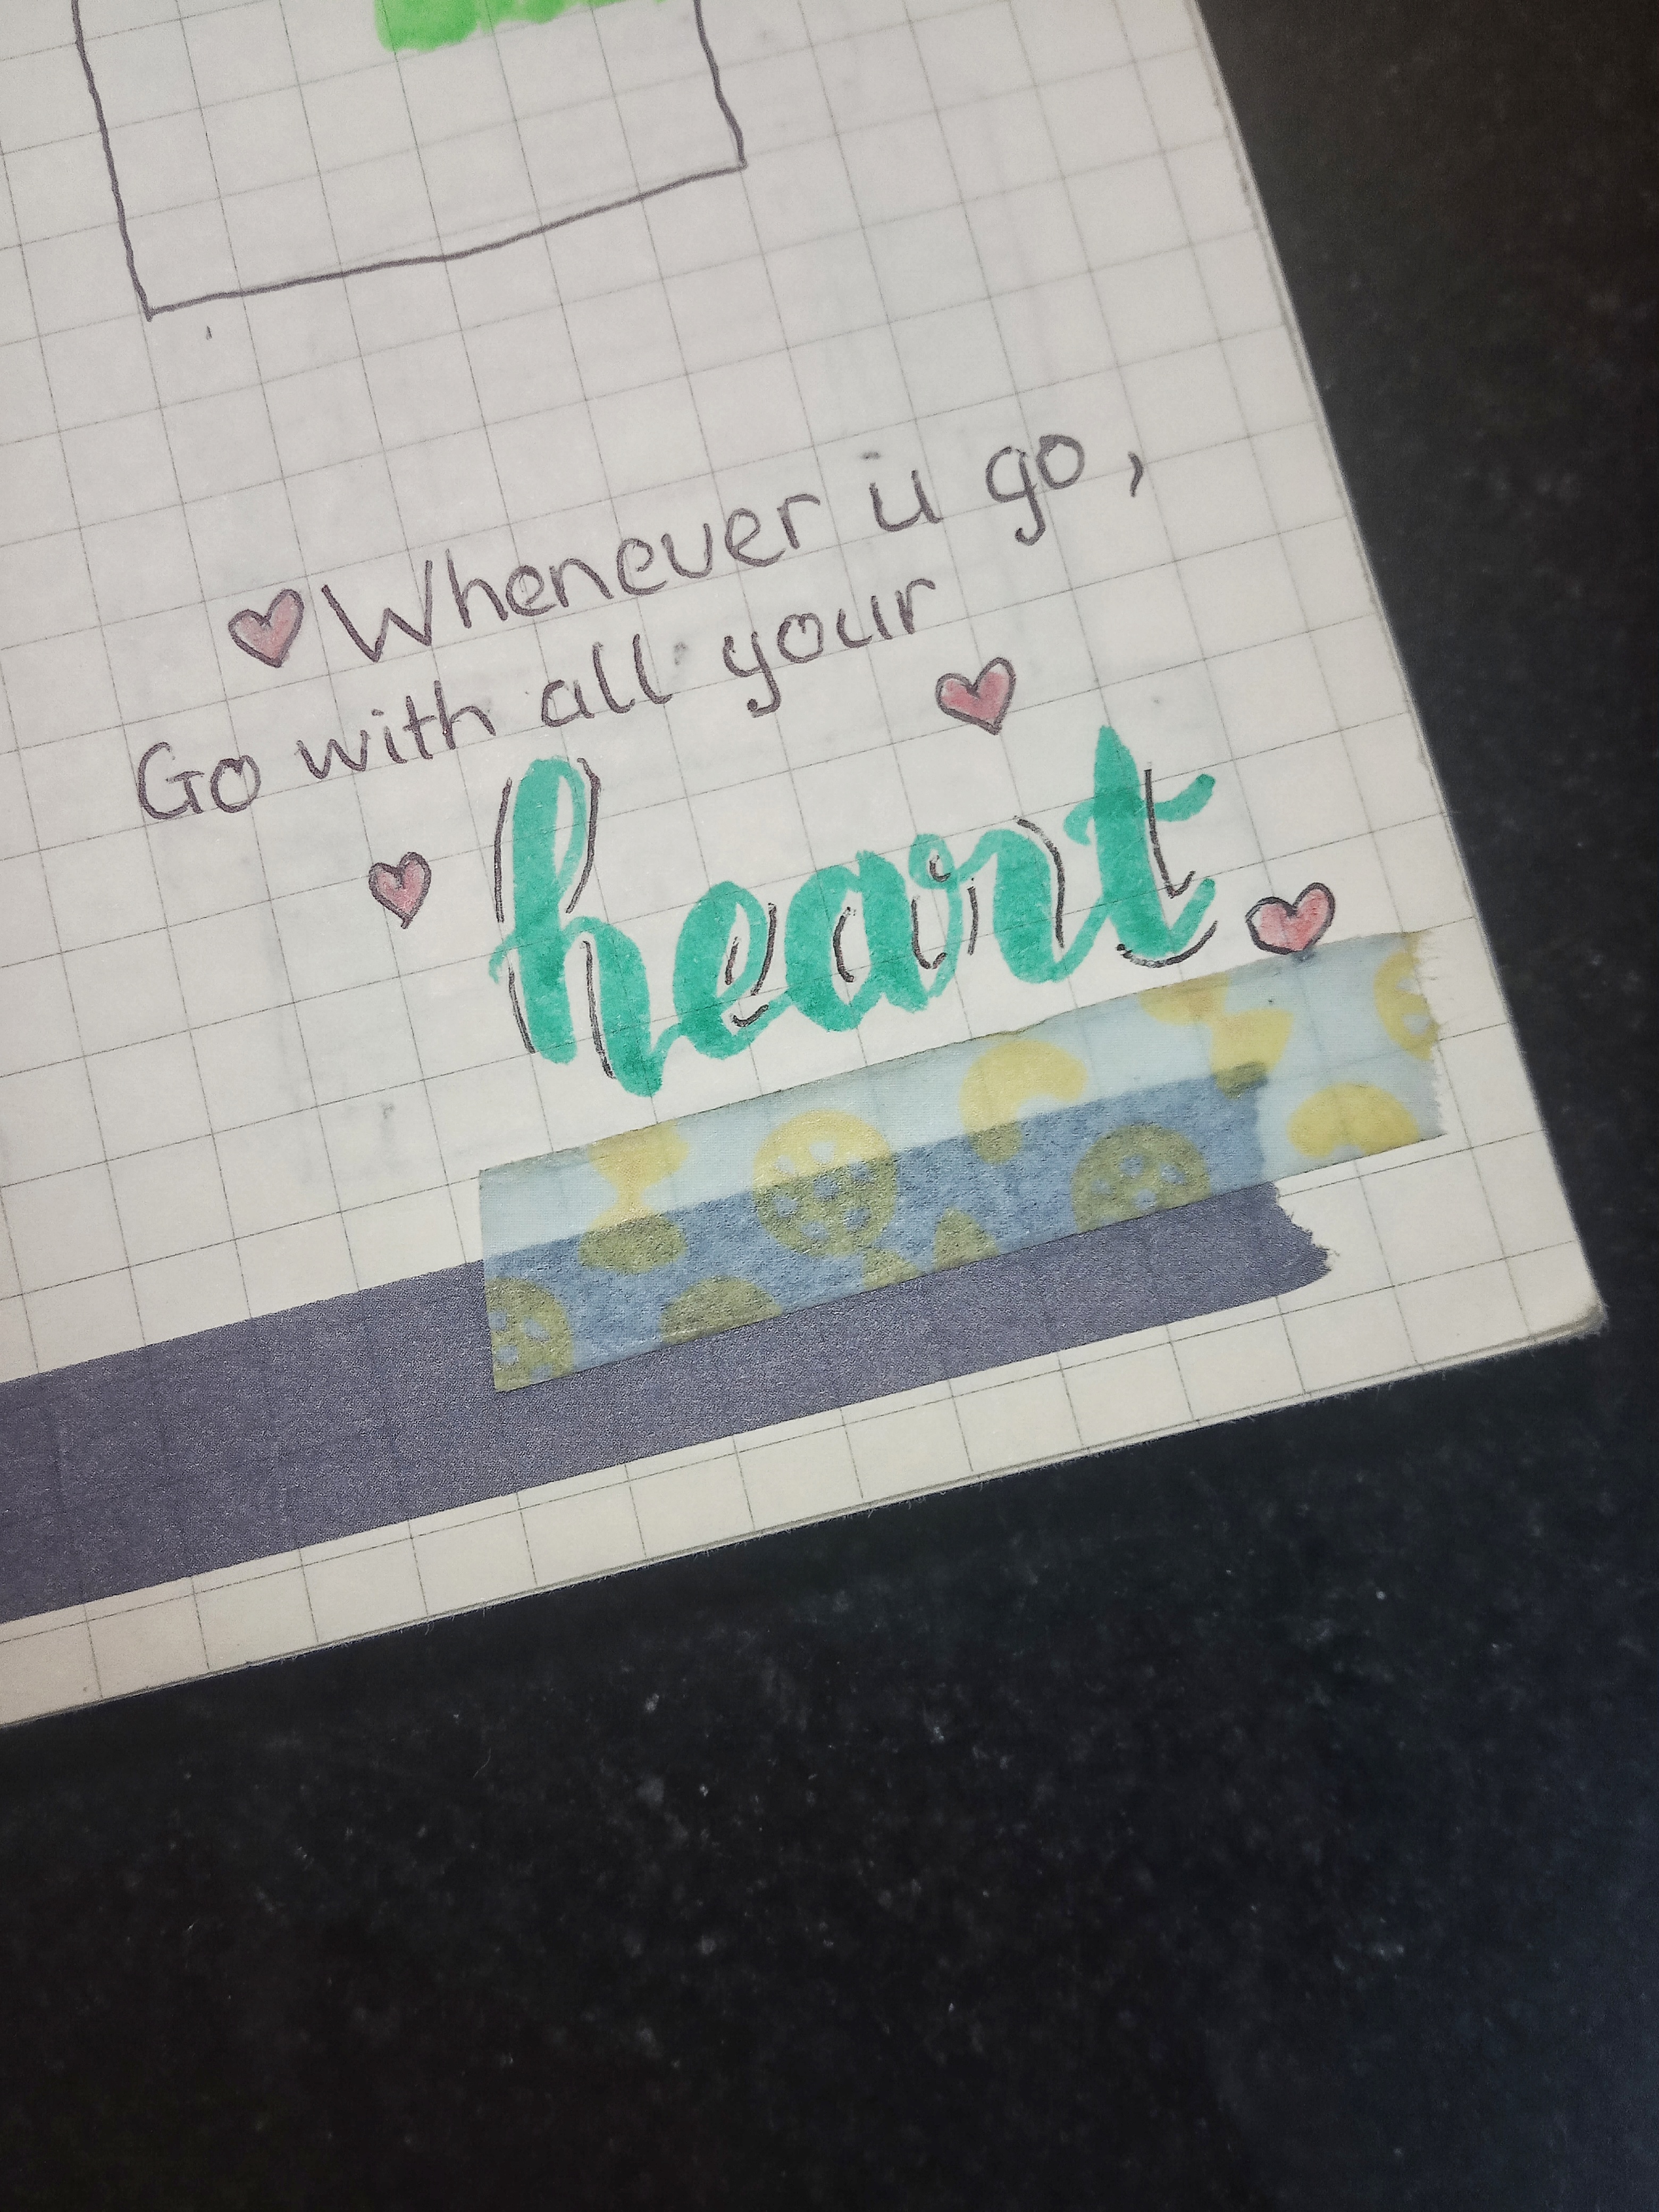 Whenever u go,
Go with all your
heart